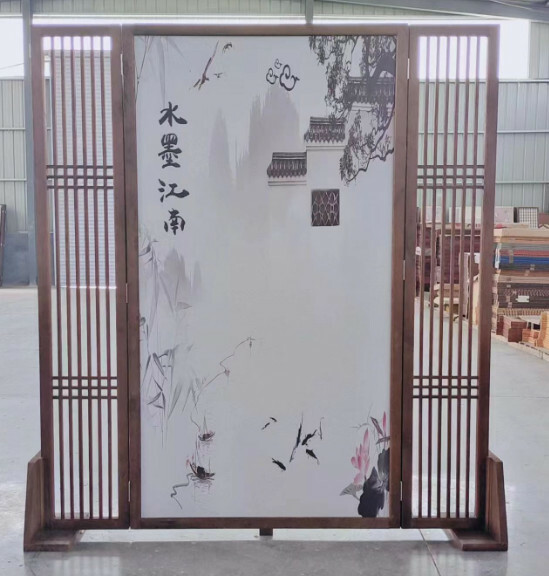 水墨江南